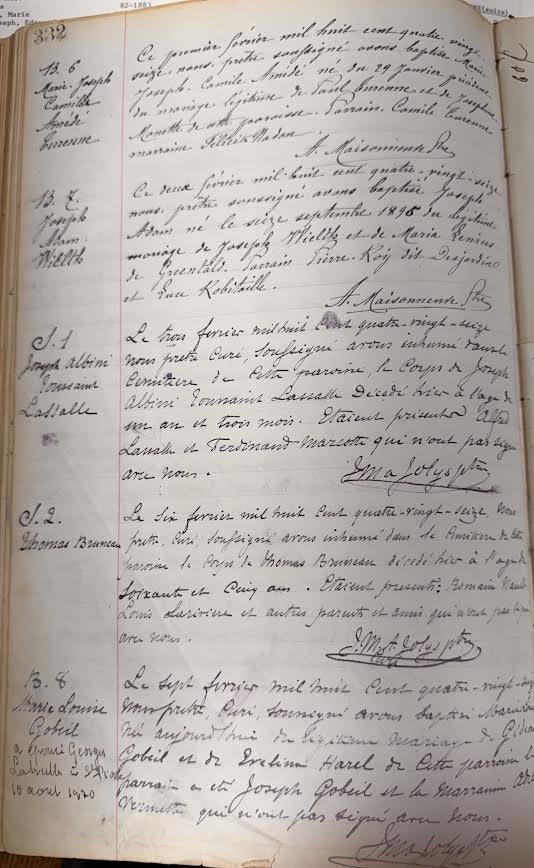 , Marie
seph, Ed
82-1883
(suite)
332
B. 6
Marie-Joseph
Camille
Amédé
Turenne
Ce premier février mil huit cent quatre-vingt-
seize nous, prêtre soussigné avons baptisé Marie
Joseph-Camile Amédé né du 29 Janvier précédent
du mariage légitime de Paul Turenne et de Joséphine
Monette de cette paroisse. Parrain, Camile Turenne
marraine Félicité Nadon.
A. Maisonneuve Ptre
B. 7.
Joseph
Adam
Wieltk
Ce deux février mil-huit cent quatre-vingt-seize
nous, prêtre soussigné avons baptisé Joseph
Adam né le seize septembre 1895 du légitime
mariage de Joseph et de Maria
de Parrain Pierre Roy dit Desjardin
et Luce Robitaille.
A. Maisonneuve Ptre
S. 1
Joseph Albini
Toussaint
Lassalle
Le trois fevrier mil huit cent quatre-vingt-seize
nous prêtre Curé, soussigné avons inhumé dans le
Cimetière de cette paroisse, le corps de Joseph
Albini Toussaint Lassalle décédé hier à l'age de
un an et trois mois. Etaient présents Alfred
Lassalle et Ferdinand Marcotte qui n'ont pas signé
avec nous.
J M A Jolys ptre
S. 2.
Thomas Bruneau
Le six fevrier mil huit cent quatre-vingt-seize, Nous
prêtre, Curé, soussigné avons inhumé dans le Cimitiere de cette
paroisse le corps de Thomas Bruneau décédé hier à l'age de
soixante et cinq ans. Etaient presents: Romain Nault
Louis Lariviere et autres parents et amis qui n'ont pas signé
avec nous.
J.M.A. Jolys ptre
Curé
B. 8
Marie Louise
Gobeil
a épousé Georges
10 aout 1920
Le sept fevrier mil huit cent quatre-vingt-seize
Nous prêtre, Curé, soussigné avons baptisé Marie
née aujourd'hui du légitime mariage de Gédéon
Gobeil et de Evelina Harel de cette paroisse le
parrain a été Joseph Gobeil et la Marraine
Vermette qui n'ont pas signé avec nous.
J M A Jolys Ptre